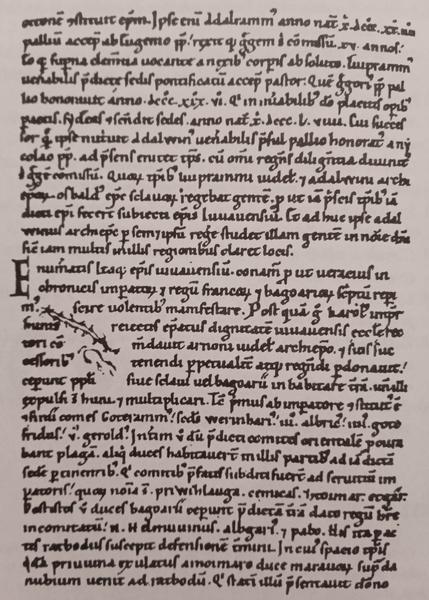 ottonē ꝯstituit epm̄. Ipse eni Adalrammꝰ anno nat xp̄i dccc xx iiii
palliū accep ab Eugenio pp̄. rexit q̇ gregē sƀ ꝯmissū xv annos.
eo q̇ supna clemtia uocante a neruiƀ corpis absoluto. Liuprammꝰ
uenabilis p̄dicte sedis pontificatū accep pastor. Quē Ḡgoriꝰ pp̄ pal
lio honorauit anno dccc xxx vi. Qi in inūabiliƀ dō placitis opiƀ
astra deseruit sedes anno nat xp̄i dccc l viiii. Cui succes
sor q̇ ipse nutriuit Adalwinꝰ uenabilis p̄sul pallio honoratꝰ a ni
colao pp̄. ad p̄sens enitet tp̄s. cū omi regins diligntia diuinitꝰ
s̄ ḡge comissū. Quoꝝ tp̄iƀ liuprammi uidel. ⁊ adalwini archi
epoꝝ osbaldꝰ epc sclauoꝝ regebat gentē. p ut ia p̄scis tp̄iƀ ia
dicti epi fecert subiecti epis iuuauensiū. Et ad huc ipse adal
winus archiepc p sem̄ ipsū rege studet illam gentē in noie dn̄i
sic iam multis in illis regionibus claret locis.
Enumatis itaq; epis iuuauensiū. conam̄ p ut ueraciꝰ in
chronicis impatoꝝ ⁊ regū francoꝝ ⁊ bagoarioꝝ sc̄ptū repi
mꝰ. scire uolentibꝰ manifestare. Post quā q̇ karolꝰ impr
hunis reiectis epatꝰ dignitatē iuuauensis eccle reo
tori cō mdauit arnoni uidel archiepo. ⁊ suis suc
cessoriƀ tenendi ppetualit atq; regendi pdonauit.
ceperunt ppli siue sclaui uel bagoarii in habitare trā. un illi
expulsi s̄ huni. ⁊ multiplicari. Tc p̄mus ab impatore ꝯstitutꝰ ē
ꝯfinii comes Goterammꝰ. scd̄s werinhariꝰ. iii. albricꝰ. iiii. goto
fridus. v. geroldꝰ. Intim v̄ dū p̄dicti comites orientalē pcura
bant plagā. aliq̇ duces habitauert in illis partiƀ ad iā dictā
sedē p tinentiƀ. Qi comitiƀ p̄fatis subditi fuert ad seruitiū im
patoris. quoꝝ noia s̄. priwizlauga. cemicas. ⁊ztoimar. etgar.
Post istos v̄ duces bagoarii cepunt p̄dictā trā dato regū hrē
in comitatū. N. Helmwinus. albgariꝰ. ⁊ pabo. His ita pac
tis ratbodus suscepit defensionē tmini. In cuiꝰ spacio tp̄is
q̇dā priuuina exulatus a moimaro duce marauoꝝ sup̄ da
nubium uenit ad ratbodū. Qi statī illū p̄sentauit dōno